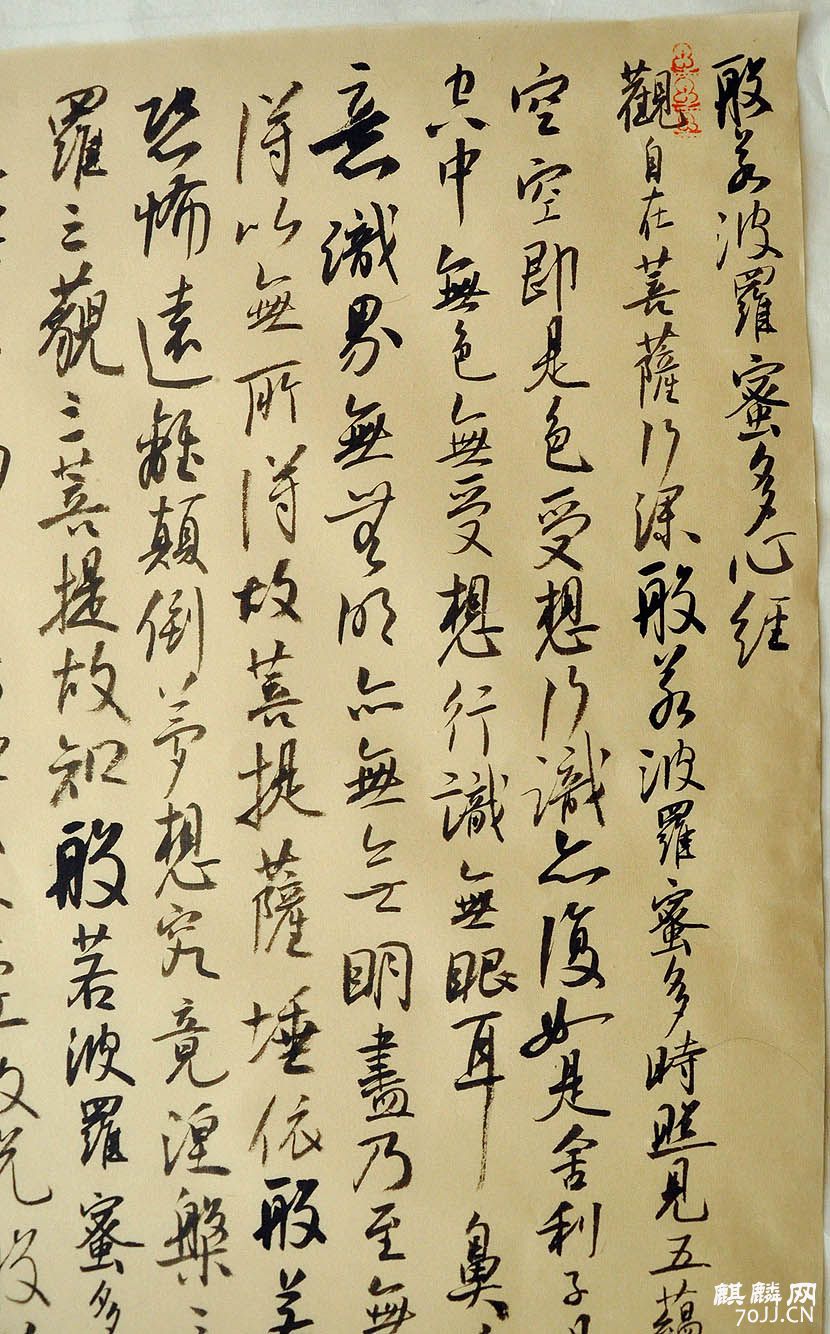 般若波羅蜜多心経
觀自在菩薩行深般若波羅蜜多時照見五蘊
空空即是色受想行識亦復如是舍利子是
空中無色無受想行識無眼耳鼻
意識界無無明亦無無明盡乃至無
得以無所得故菩提薩埵依般若
恐怖遠離顛倒夢想究竟涅槃三
羅三藐三菩提故知般若波羅蜜多
麒麟网
70JJ.CN